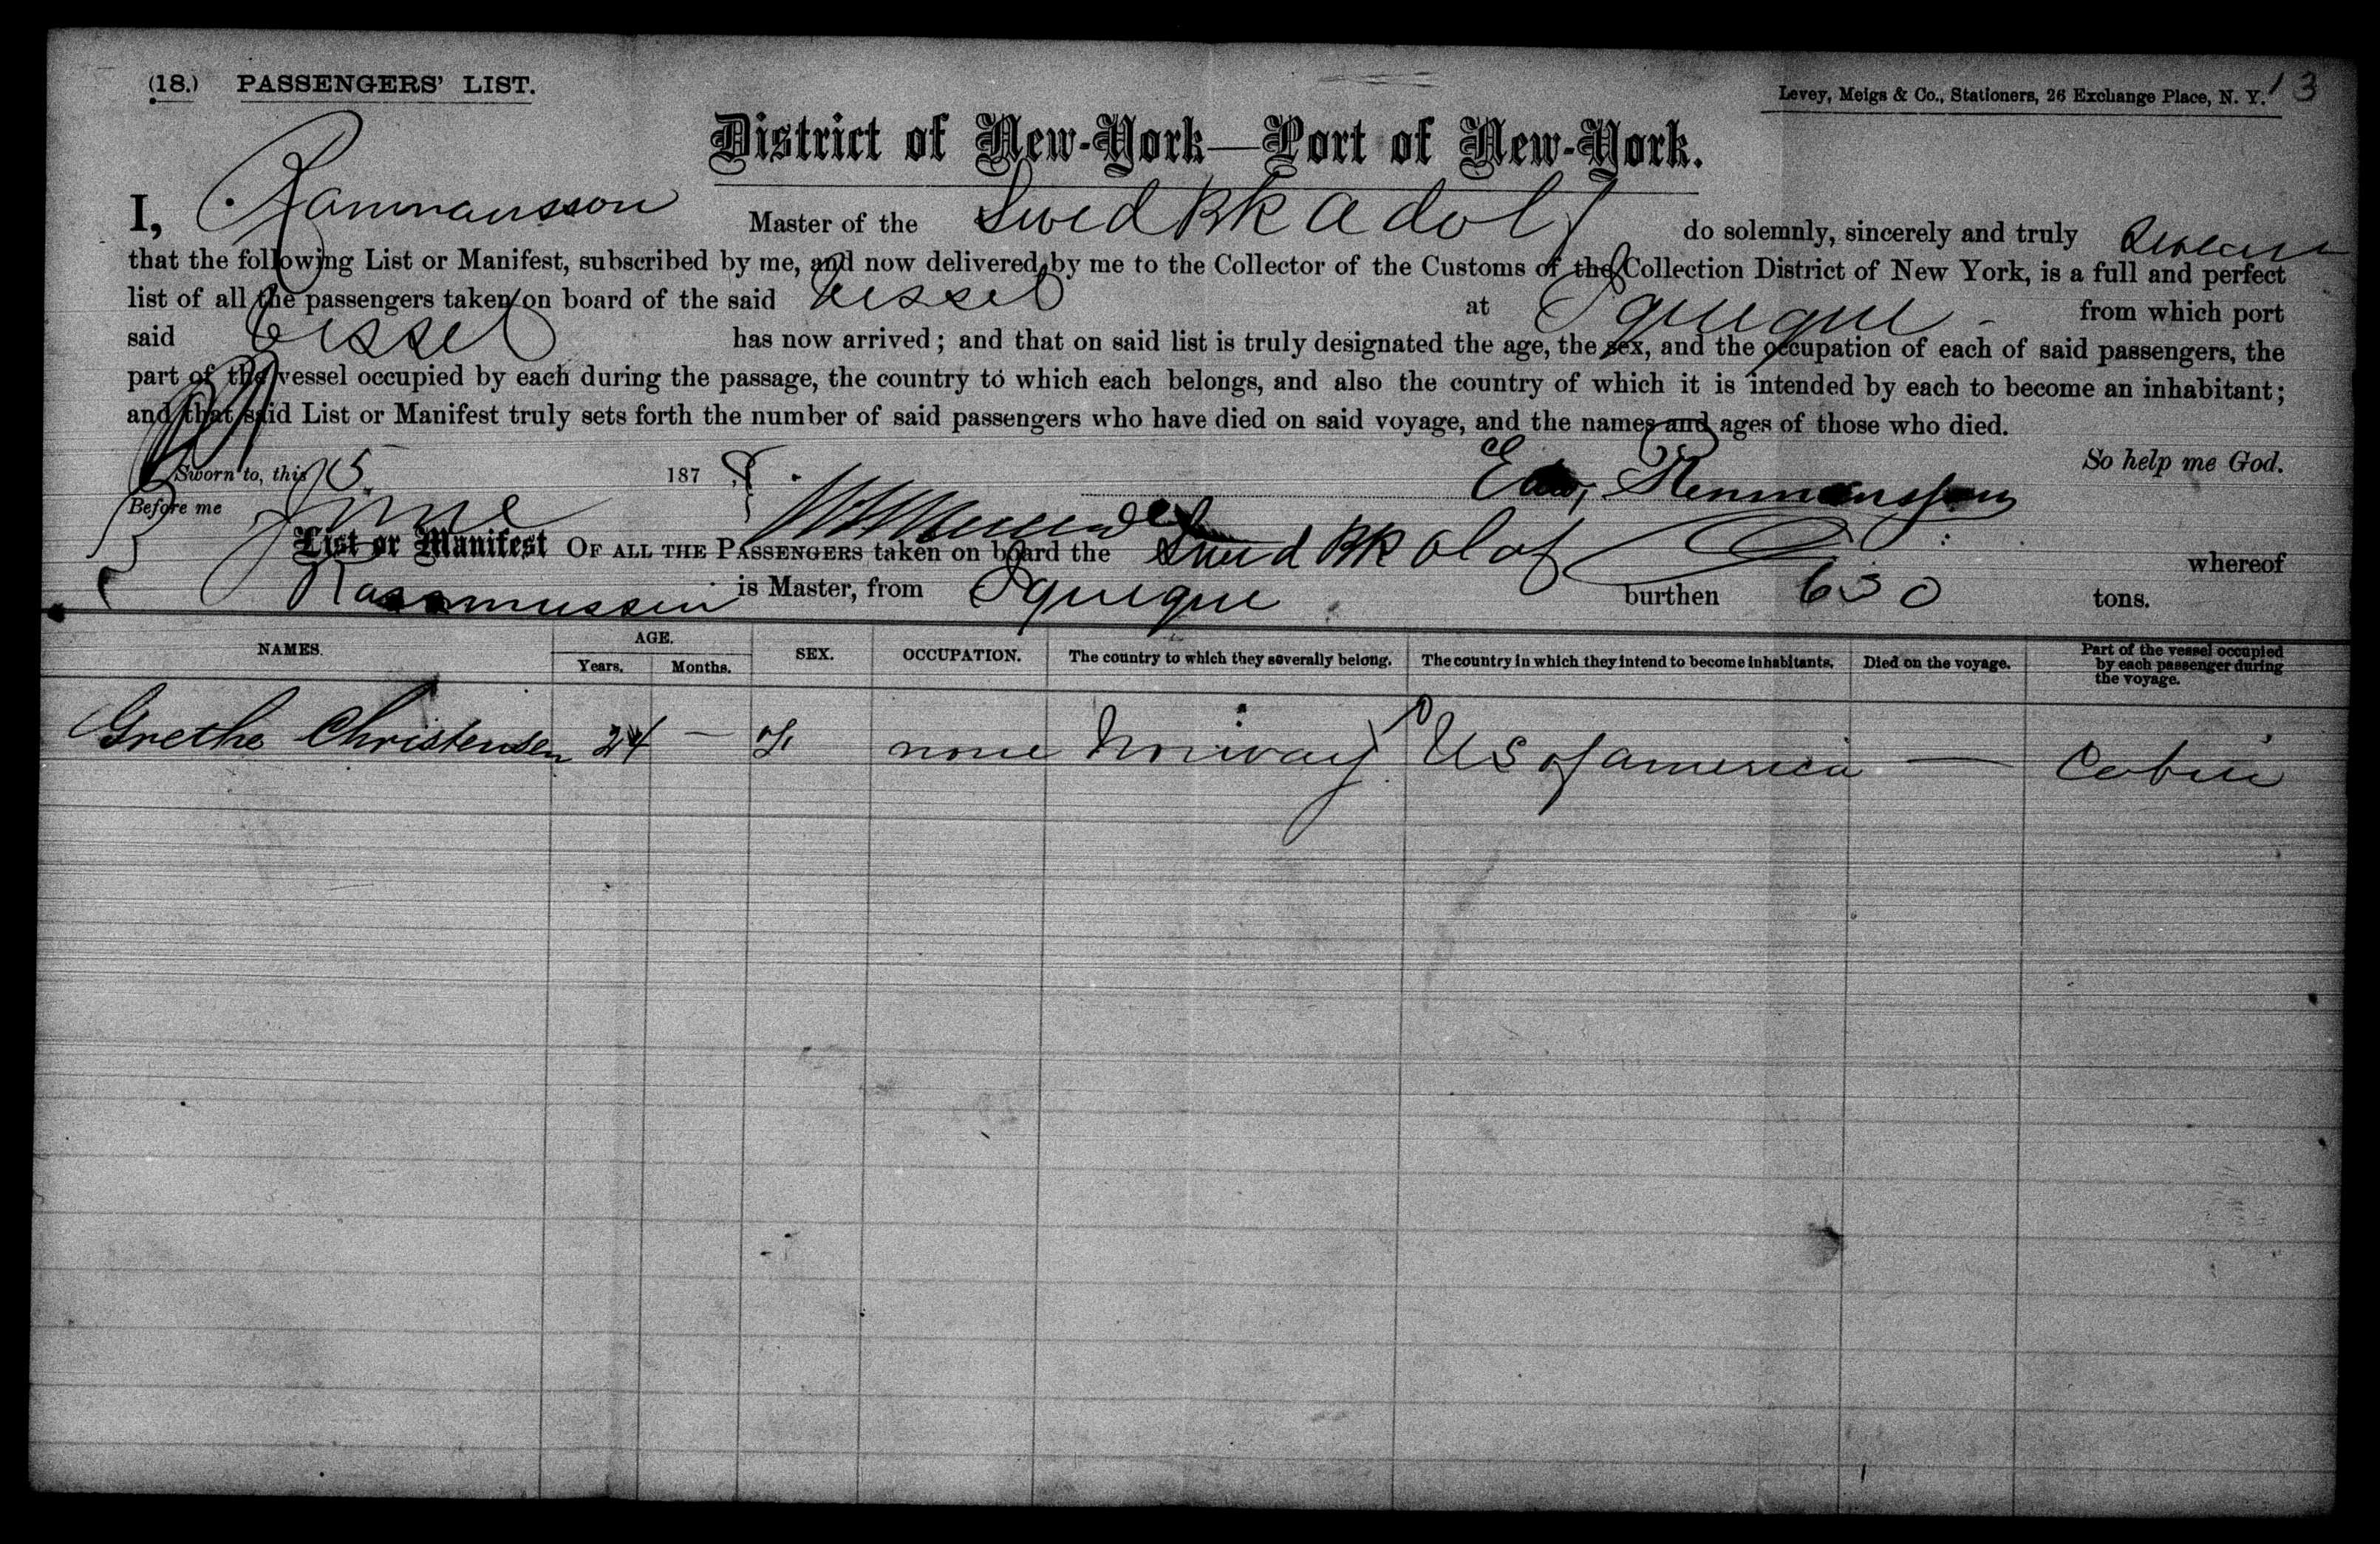 (18.) PASSENGERS' LIST. Levey, Meigs & Co., Stationers, 26 Exchange Place, N. Y. 13
District of New-York—Port of New-York.
I, Master of the Swed Bk Adolf do solemnly, sincerely and truly swear
that the following List or Manifest, subscribed by me, and now delivered by me to the Collector of the Customs of the Collection District of New York, is a full and perfect
list of all the passengers taken on board of the said vessel at Iquique from which port
said vessel has now arrived; and that on said list is truly designated the age, the sex, and the occupation of each of said passengers, the
part of the vessel occupied by each during the passage, the country to which each belongs, and also the country of which it is intended by each to become an inhabitant;
and that said List or Manifest truly sets forth the number of said passengers who have died on said voyage, and the names and ages of those who died.
So help me God.
Sworn to, this 15 1878
Before me June
List or Manifest OF ALL THE PASSENGERS taken on board the Swed Bk Olof whereof
Rassmussen is Master, from Iquique burthen 630 tons.
NAMES. AGE. Years. Months. SEX. OCCUPATION. The country to which they severally belong. The country in which they intend to become inhabitants. Died on the voyage. Part of the vessel occupied by each passenger during the voyage.
Grethe Christensen 24 — F. none Norway US of America — Cabin